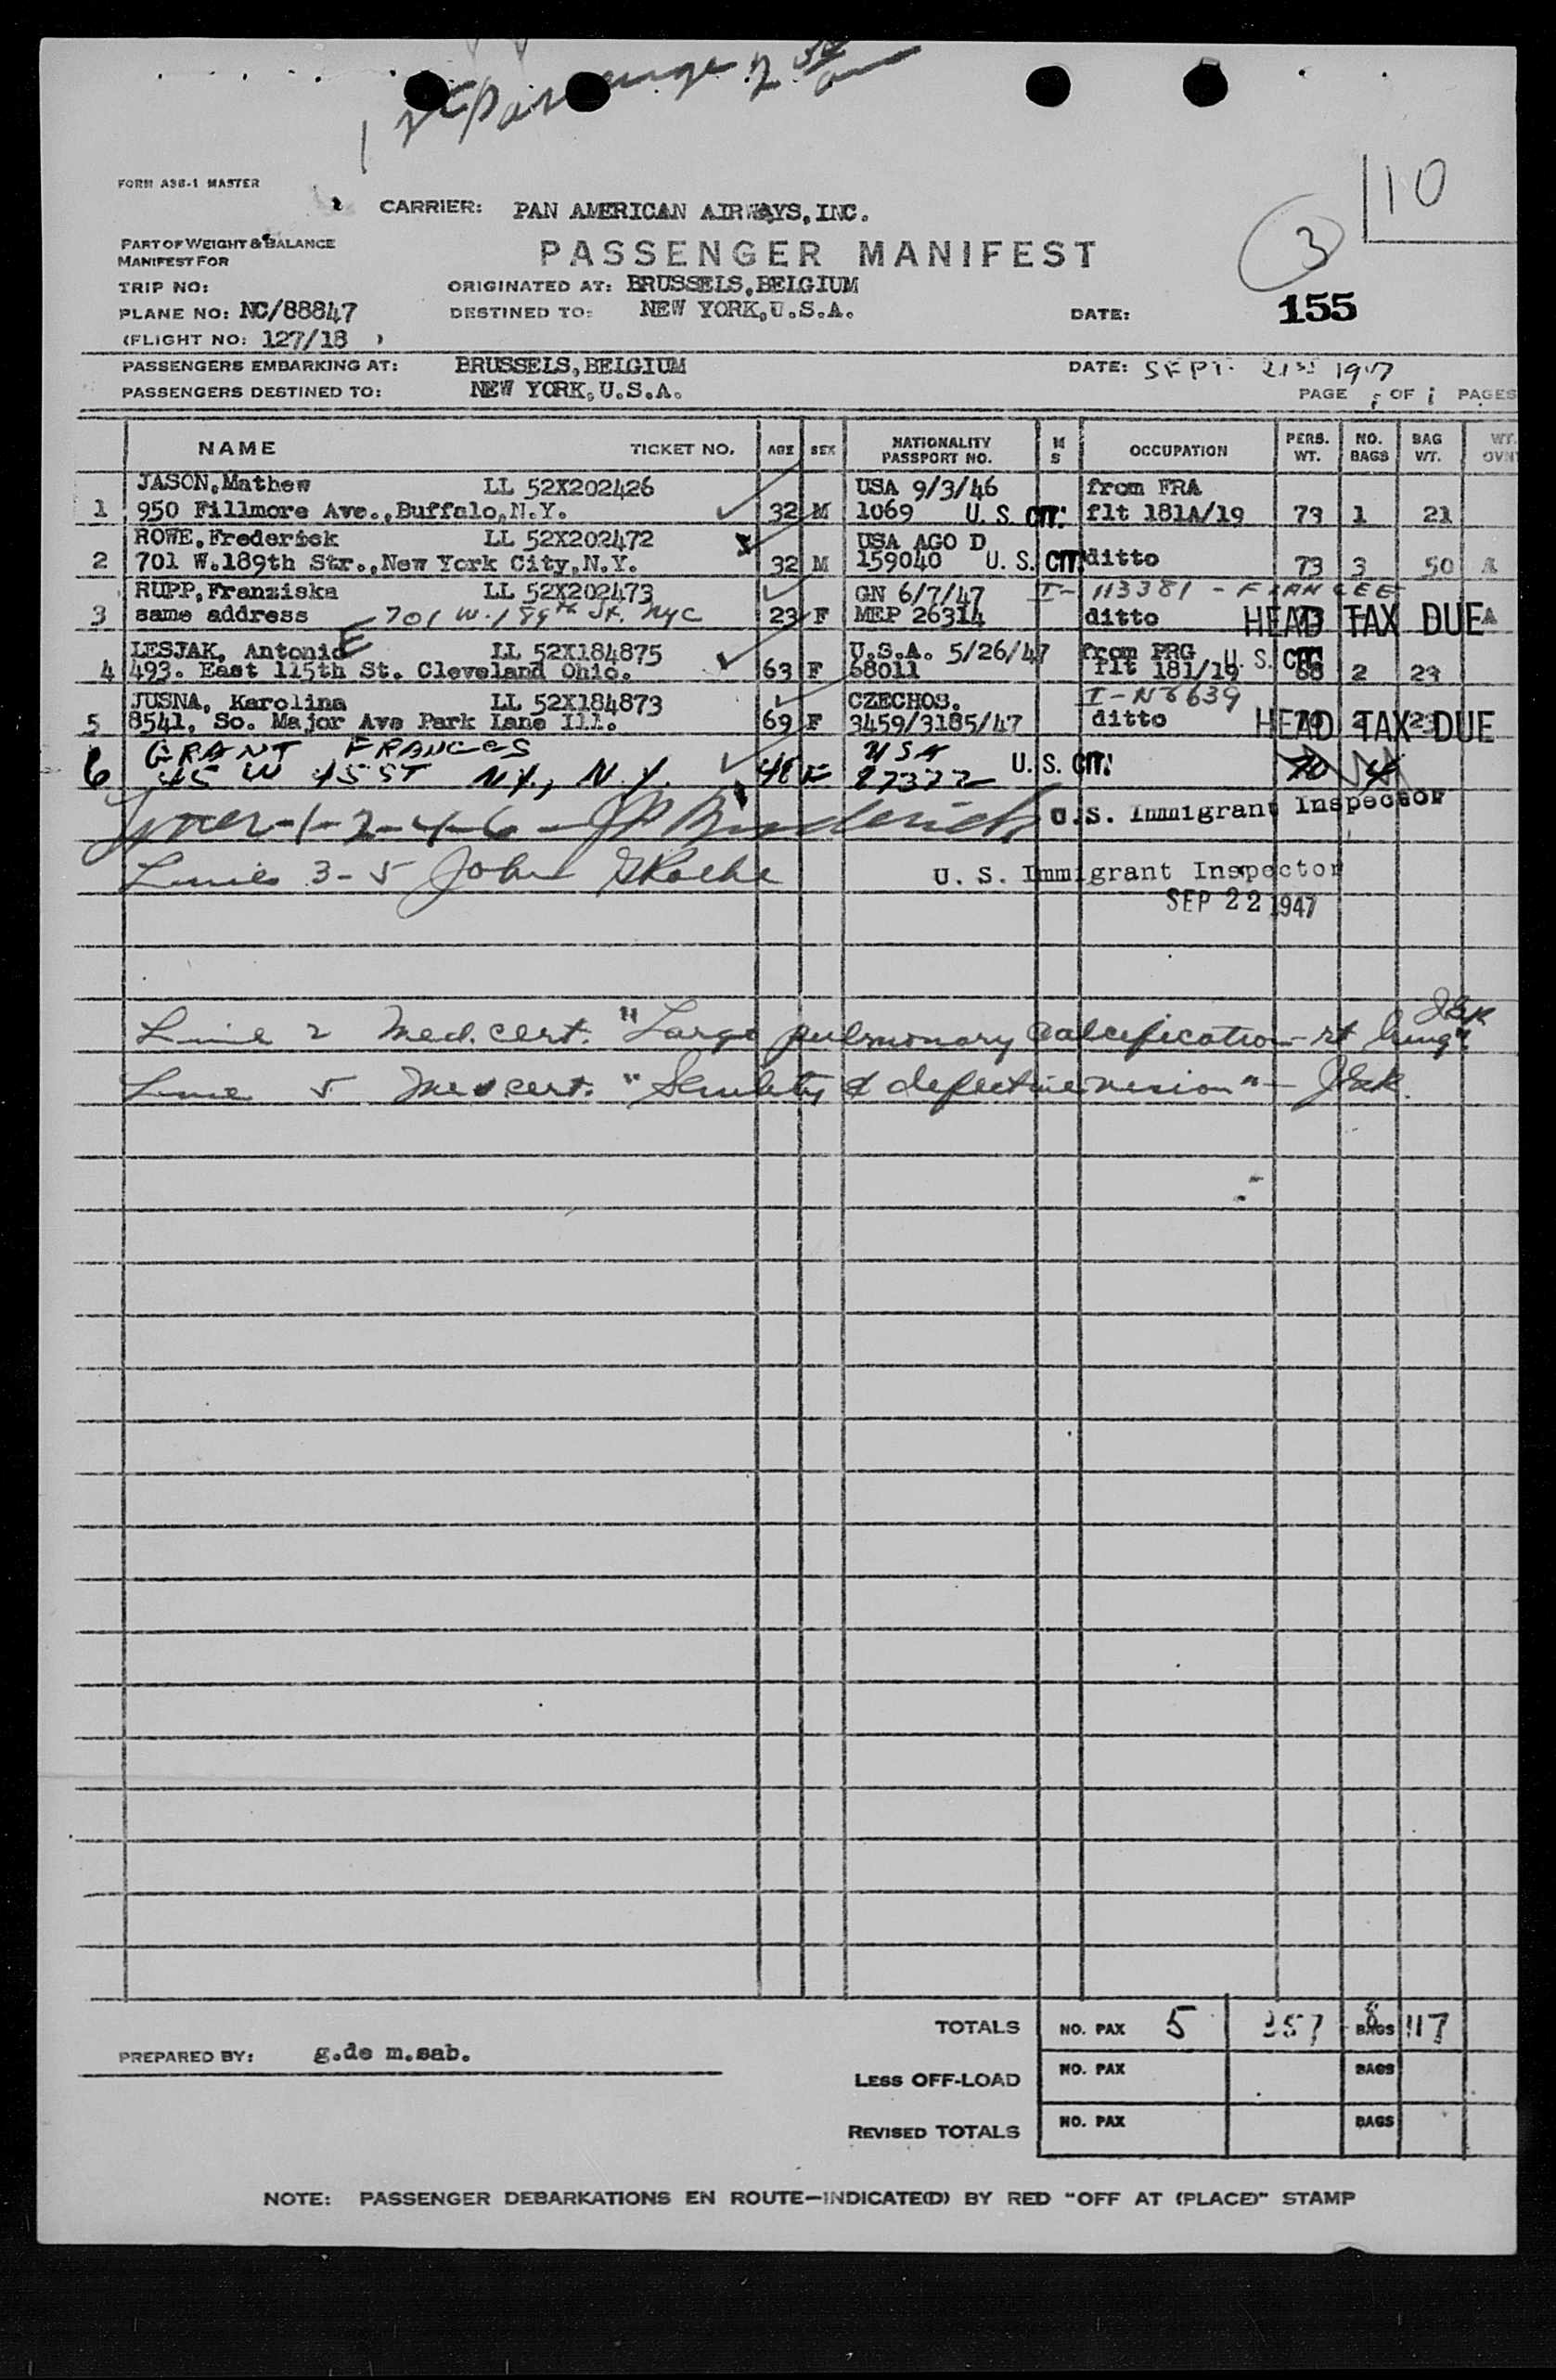 FORM A36-1 MASTER
10
3
CARRIER: PAN AMERICAN AIRWAYS, INC.
PART OF WEIGHT & BALANCE
MANIFEST FOR
PASSENGER MANIFEST
TRIP NO:
ORIGINATED AT: BRUSSELS, BELGIUM
PLANE NO: NC/88847
DESTINED TO: NEW YORK, U.S.A.
DATE: 155
(FLIGHT NO: 127/18 )
PASSENGERS EMBARKING AT: BRUSSELS, BELGIUM
DATE: SEPT. 21st 1947
PASSENGERS DESTINED TO: NEW YORK, U.S.A.
PAGE 1 OF 1 PAGES
NAME TICKET NO. AGE SEX NATIONALITY PASSPORT NO. M S OCCUPATION PERS. WT. NO. BAGS BAG WT. WT.
JASON, Mathew LL 52X202426 USA 9/3/46 from FRA
1 950 Fillmore Ave., Buffalo, N.Y. 32 M 1069 U. S. CIT. flt 181A/19 73 1 21
ROWE, Frederick LL 52X202472 USA AGO D
2 701 W.189th Str., New York City, N.Y. 32 M 159040 U. S. CIT. ditto 73 3 50 A
RUPP, Franziska LL 52X202473 GN 6/7/47 I- 113381 - FIANCEE
3 same address 701 W. 189th St. NYC 23 F MEP 26314 ditto HEAD TAX DUE
LESJAK, Antonie LL 52X184875 U.S.A. 5/26/47 from PRG
4 493. East 115th St. Cleveland Ohio. 63 F 68011 flt 181/19 U. S. CIT. 68 2 23
JUSNA, Karolina LL 52X184873 CZECHOS. I-N6639
5 8541, So. Major Ave Park Lane Ill. 69 F 3459/3185/47 ditto 70 2 23 HEAD TAX DUE
GRANT FRANCES USA
6 45 W 45 ST N.Y., N.Y. 48 F 87372 U. S. CIT.
Lines-1-2-4-6- U. S. Immigrant Inspector
Lines 3-5 John U. S. Immigrant Inspector
SEP 22 1947
Line 2 Med. cert. "Large pulmonary calcification - rt lung"
Line 5 Med cert. "Senility & defective vision" -
TOTALS NO. PAX 5 357 8 BAGS 117
PREPARED BY: g.de m.sab.
LESS OFF-LOAD NO. PAX BAGS
REVISED TOTALS NO. PAX BAGS
NOTE: PASSENGER DEBARKATIONS EN ROUTE—INDICATE(D) BY RED "OFF AT (PLACE)" STAMP